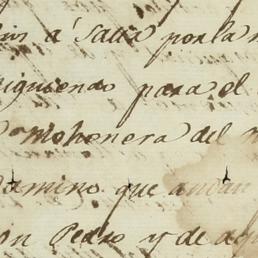 á Saca por la
siguiendo para el
mohonera del
Camino que andan
on Pedro y de aq